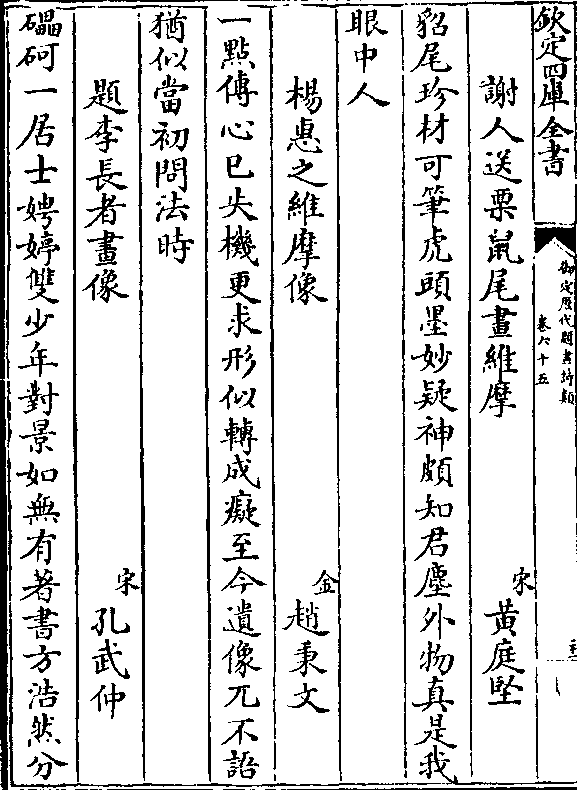 欽定四庫全書
御定歴代題畫詩類
卷六十五
謝人送栗鼠尾畫維摩 宋 黃庭堅
貂尾珍材可筆虎頭墨妙疑神頗知君塵外物真是我
眼中人
楊惠之維摩像 金 趙秉文
一點傳心已失機更求形似轉成癡至今遺像兀不語
猶似當初問法時
題李長者畫像 宋 孔武仲
礧砢一居士娉婷雙少年對景如無有著書方浩然分